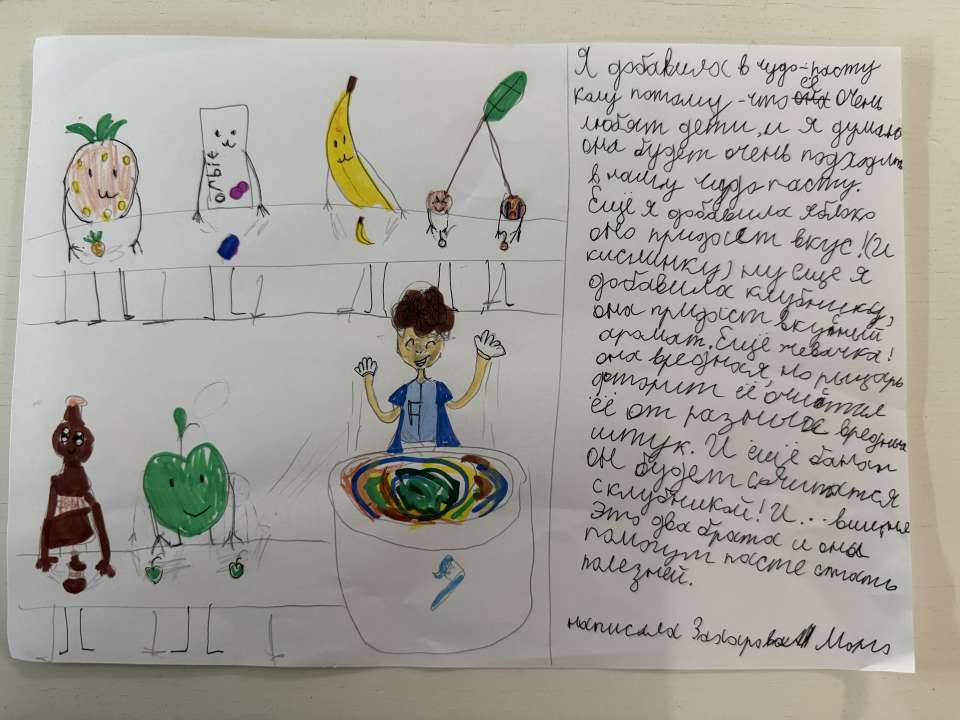 orbit
Я добавила в чудо-пасту
колу потому-что её очень
любят дети, и я думаю
она будет очень подходить
в нашу чудо пасту.
Ещё я добавила яблоко
оно придаст вкус! (и
кислинку) ну ещё я
добавила клубничку,
она придаст вкусный
аромат. Ещё жевачка!
она вредная, но рыцарь
фтор её очистил
её от разных вредных
штук. И ещё банан
он будет сочитатся
с клубникой! И... вишня
это два брата и они
помогут пасте стать
полезней.
написала Захарова